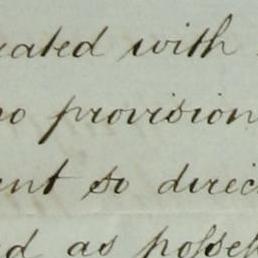 eated with
no provision
ent so direc
ed as possess